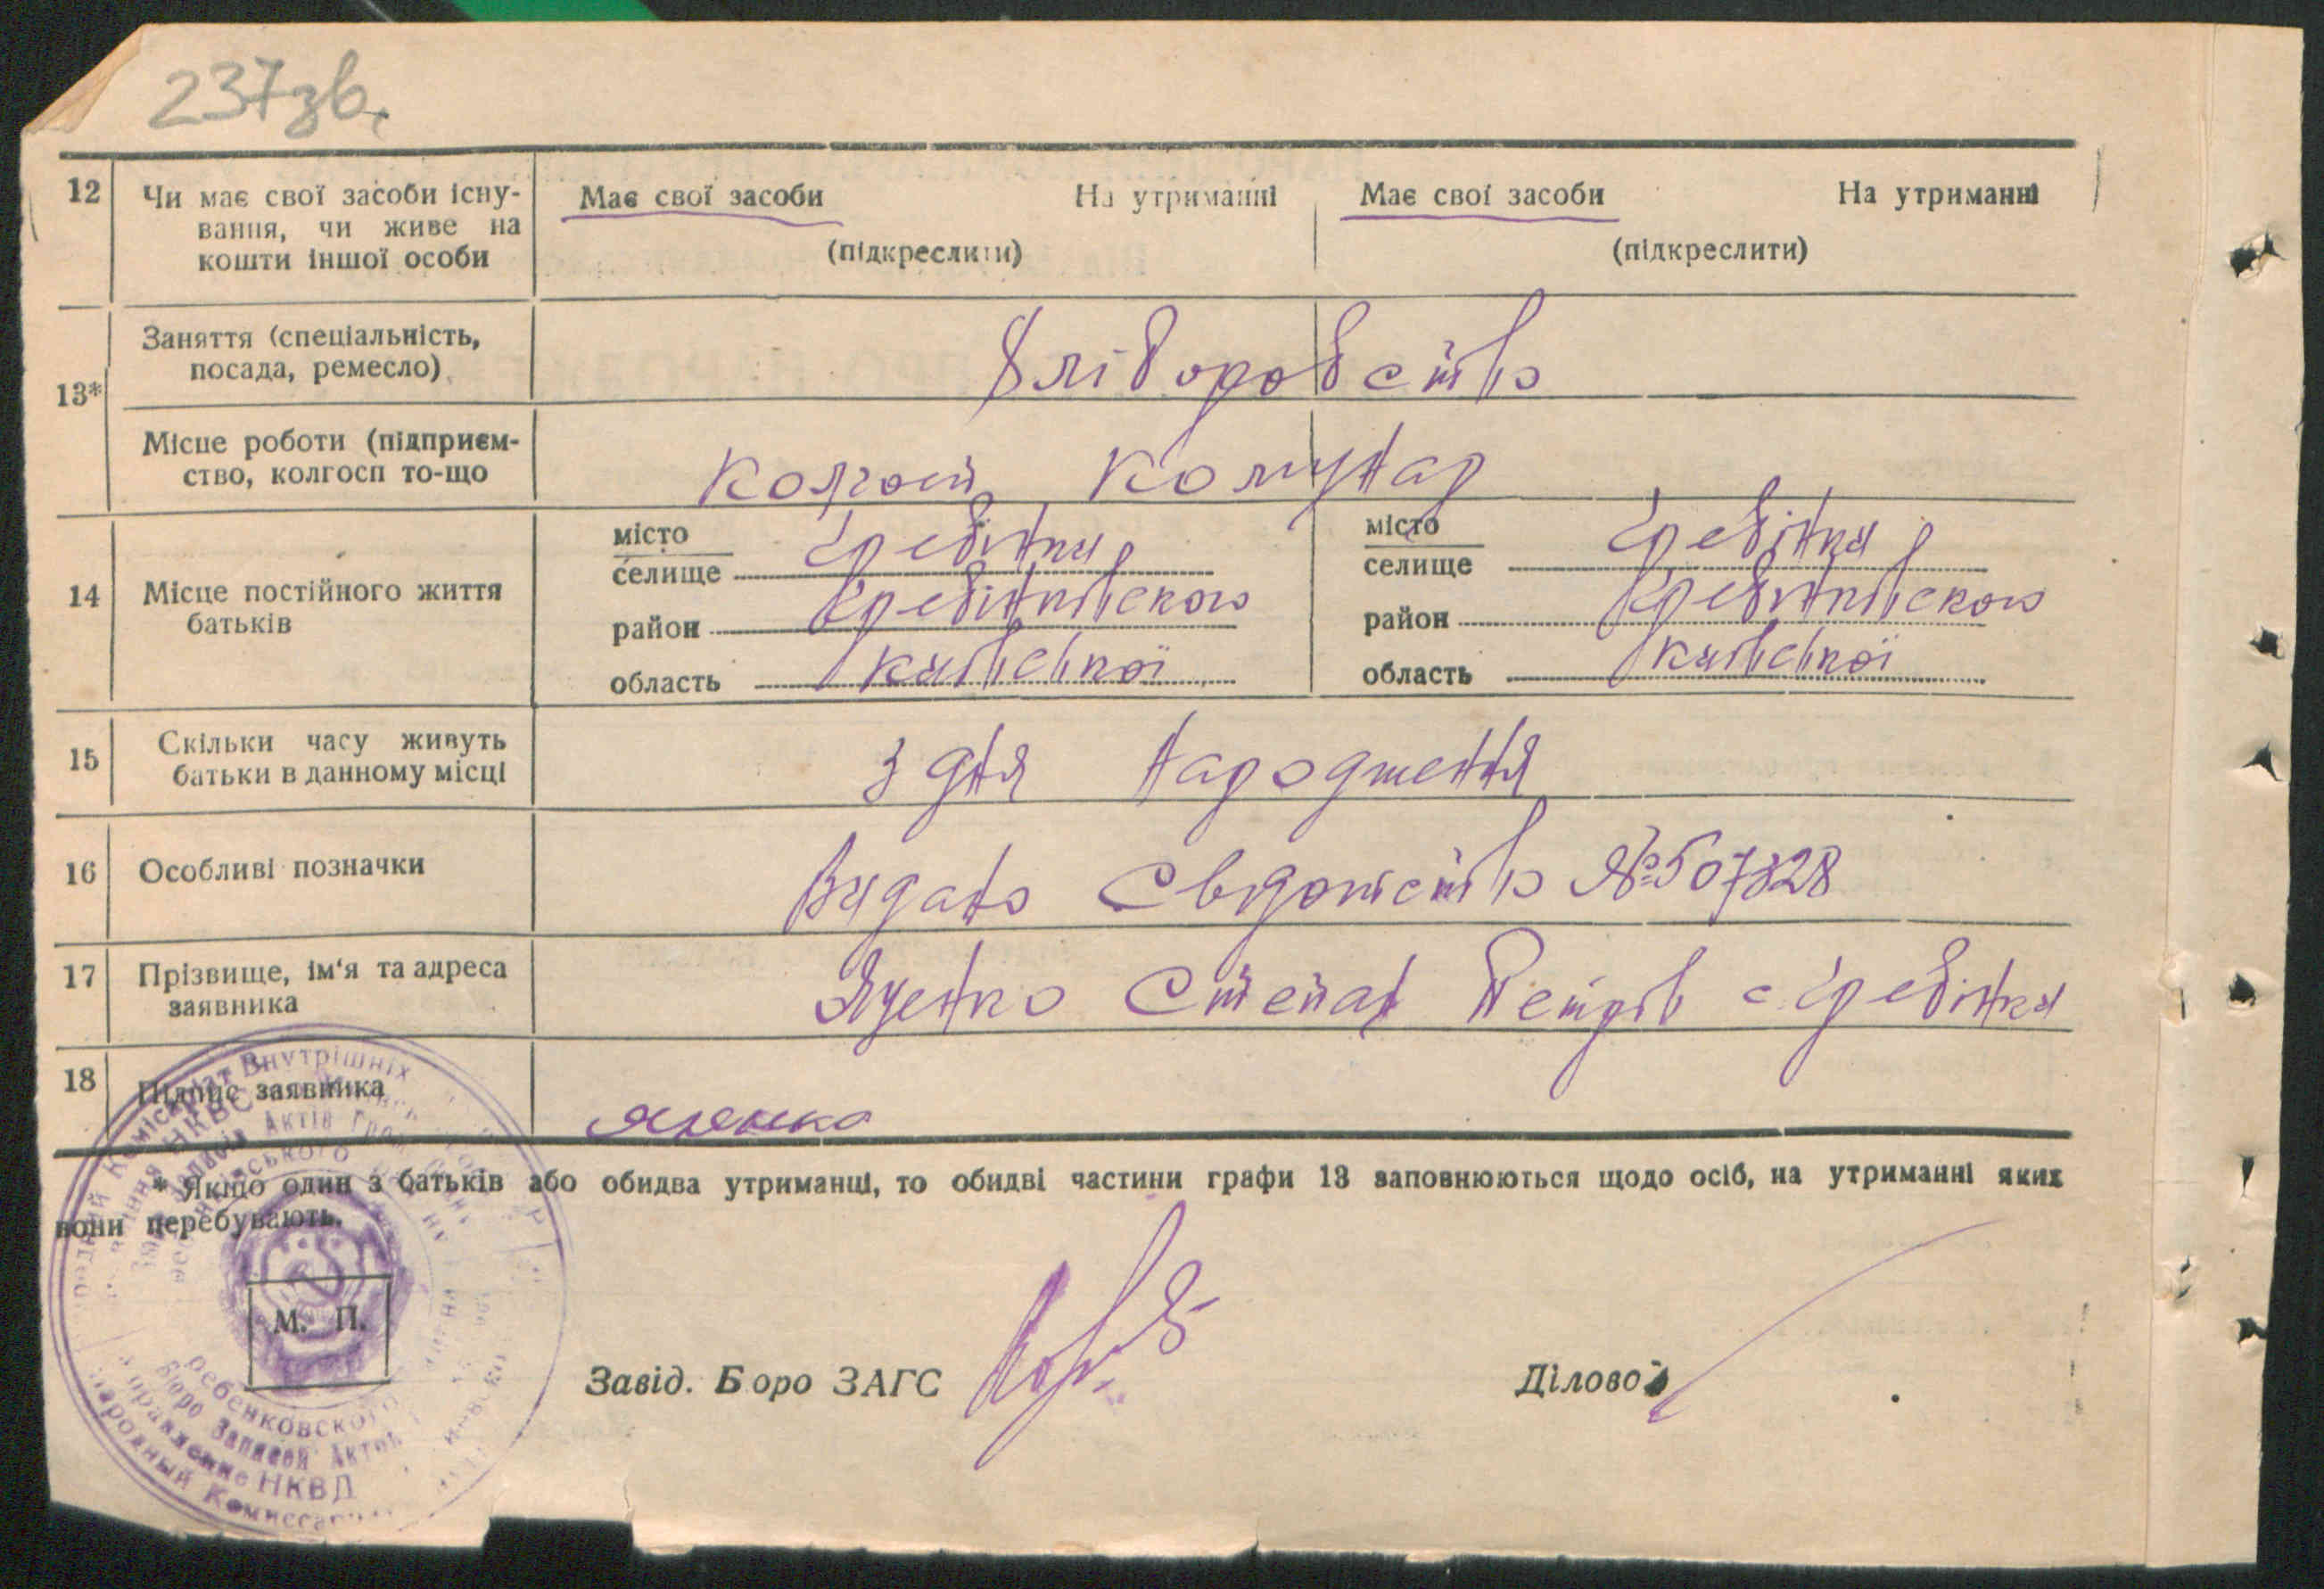 237зв.
12 Чи має свої засоби існу- Має свої засоби На утриманні Має свої засоби На утриманні
вання, чи живе на (підкреслити) (підкреслити)
кошти іншої особи
13* Заняття (спеціальність,
посада, ремесло) Хліборобство
Місце роботи (підприєм- колгосп Комунар
ство, колгосп то-що
14 Місце постійного життя
батьків
місто
селище Гребінки
район Гребінківского
область Київської
місто
селище Гребінки
район Гребінківского
область Київської
15 Скільки часу живуть
батьки в данному місці з дня народження
16 Особливі позначки Видано Свідотство №507828
17 Прізвище, ім'я та адреса
заявника Яценко Степан Петрів с Гребінки
18 Підпис заявника
Яценко
* Якщо один з батьків або обидва утриманці, то обидві частини графи 13 заповнюються щодо осіб, на утриманні яких
вони перебувають.
М. П.
Завід. Боро ЗАГС Діловод
Комісаріат Внутрішніх
НКВС
Записів Актів
Гребенковского
Бюро Записей Актов
Управление НКВД
Народный Комиссариат